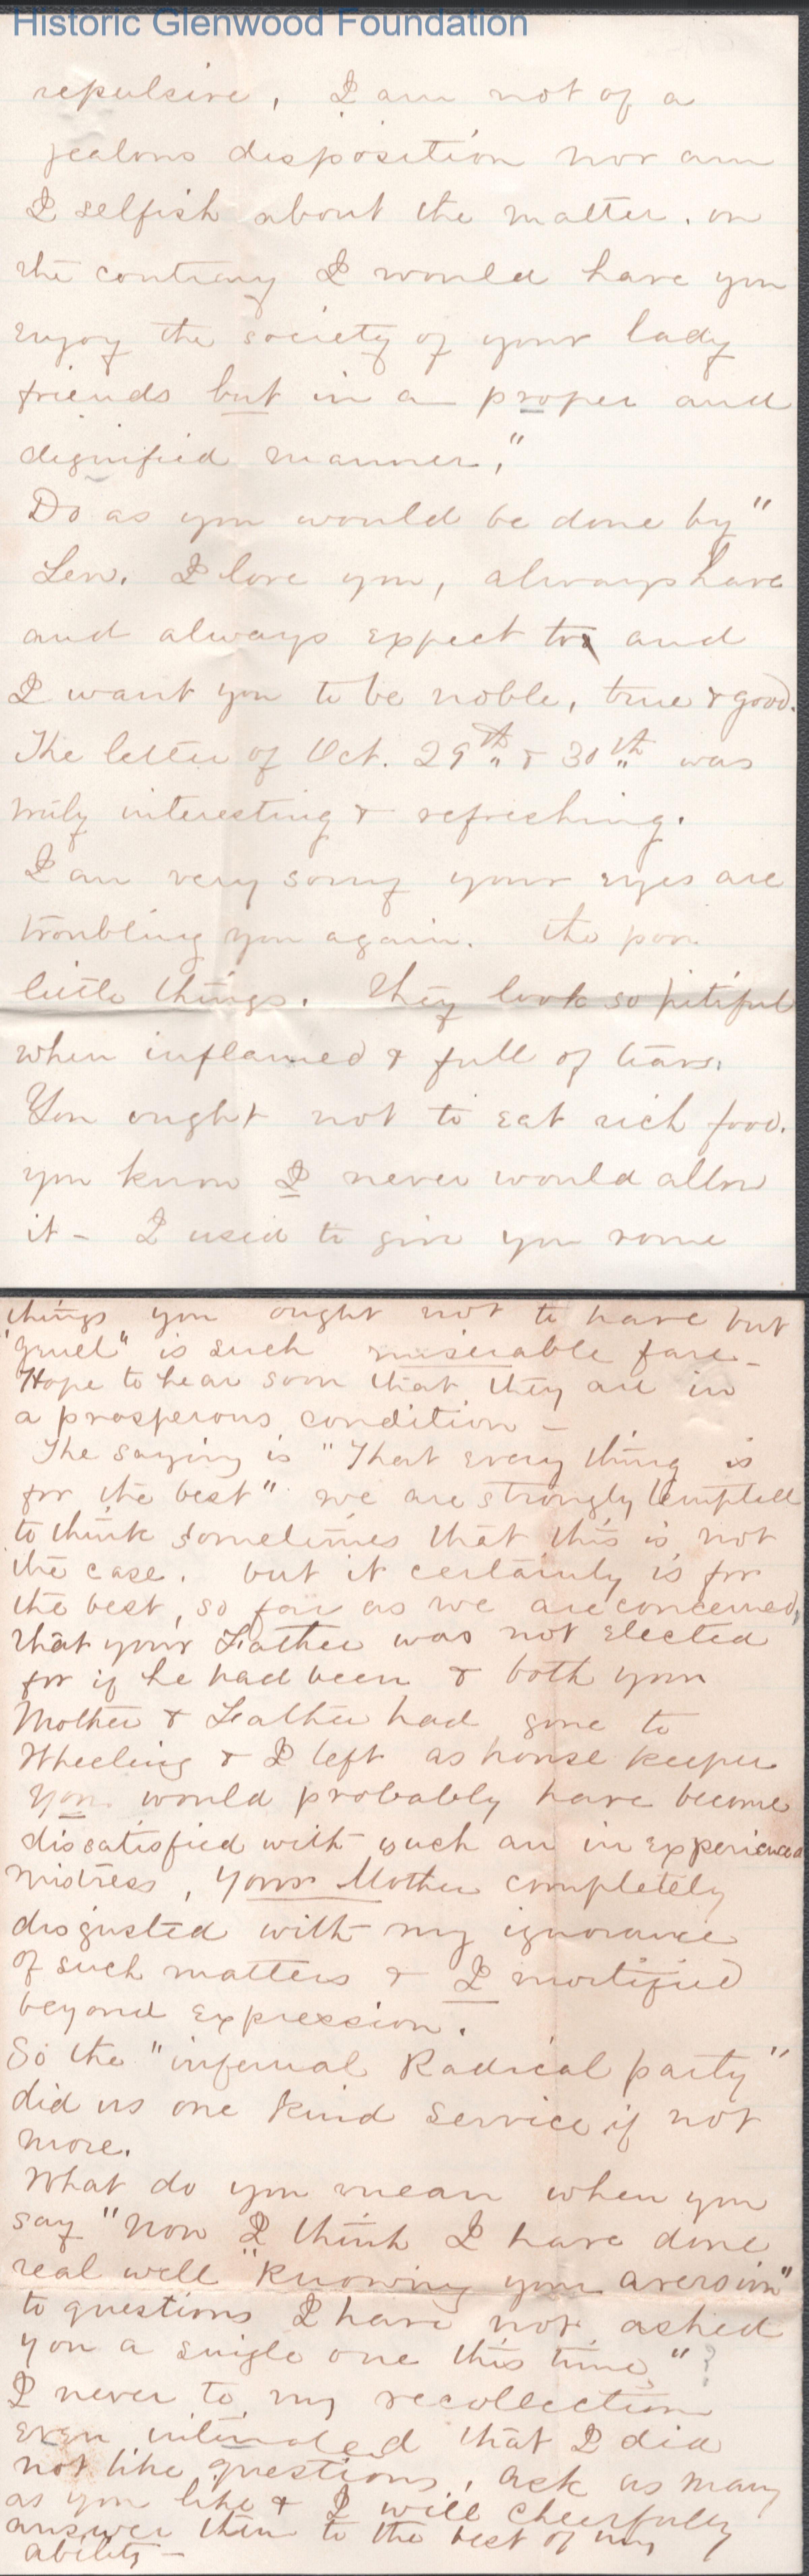 Historic Glenwood Foundation
repulsive, I am not of a
jealous disposition nor am
I selfish about the matter. on
the contrary I would have you
enjoy the society of your lady
friends but in a proper and
dignified manner,"
Do as you would be done by"
Lew. I love you, always have
and always expect to and
I want you to be noble, true & good.
The letter of Oct. 29th & 30th was
truly interesting & refreshing.
I am very sorry your eyes are
troubling you again. the poor
little things. They look so pitiful
when inflamed & full of tears.
You ought not to eat rich food.
you know I never would allow
it - I used to give you some
things you ought not to have but
"gruel" is such miserable fare -
Hope to hear soon that they are in
a prosperous condition -
The saying is "That every thing is
for the best" we are strongly tempted
to think sometimes that this is not
the case. but it certainly is for
the best, so far as we are concerned,
that your Father was not elected
for if he had been & both your
Mother & Father had gone to
Wheeling & I left as house keeper
you would probably have become
dissatisfied with such an inexperienced
mistress, your Mother completely
disgusted with my ignorance
of such matters & I mortified
beyond expression.
So the "infernal Radical party"
did us one kind service if not
more.
What do you mean when you
say "Now I think I have done
real well "knowing your aversion"
to questions I have not asked
you a single one this time"?
I never to my recollection
even intimated that I did
not like questions, ask as many
as you like & I will cheerfully
answer them to the best of my
ability -